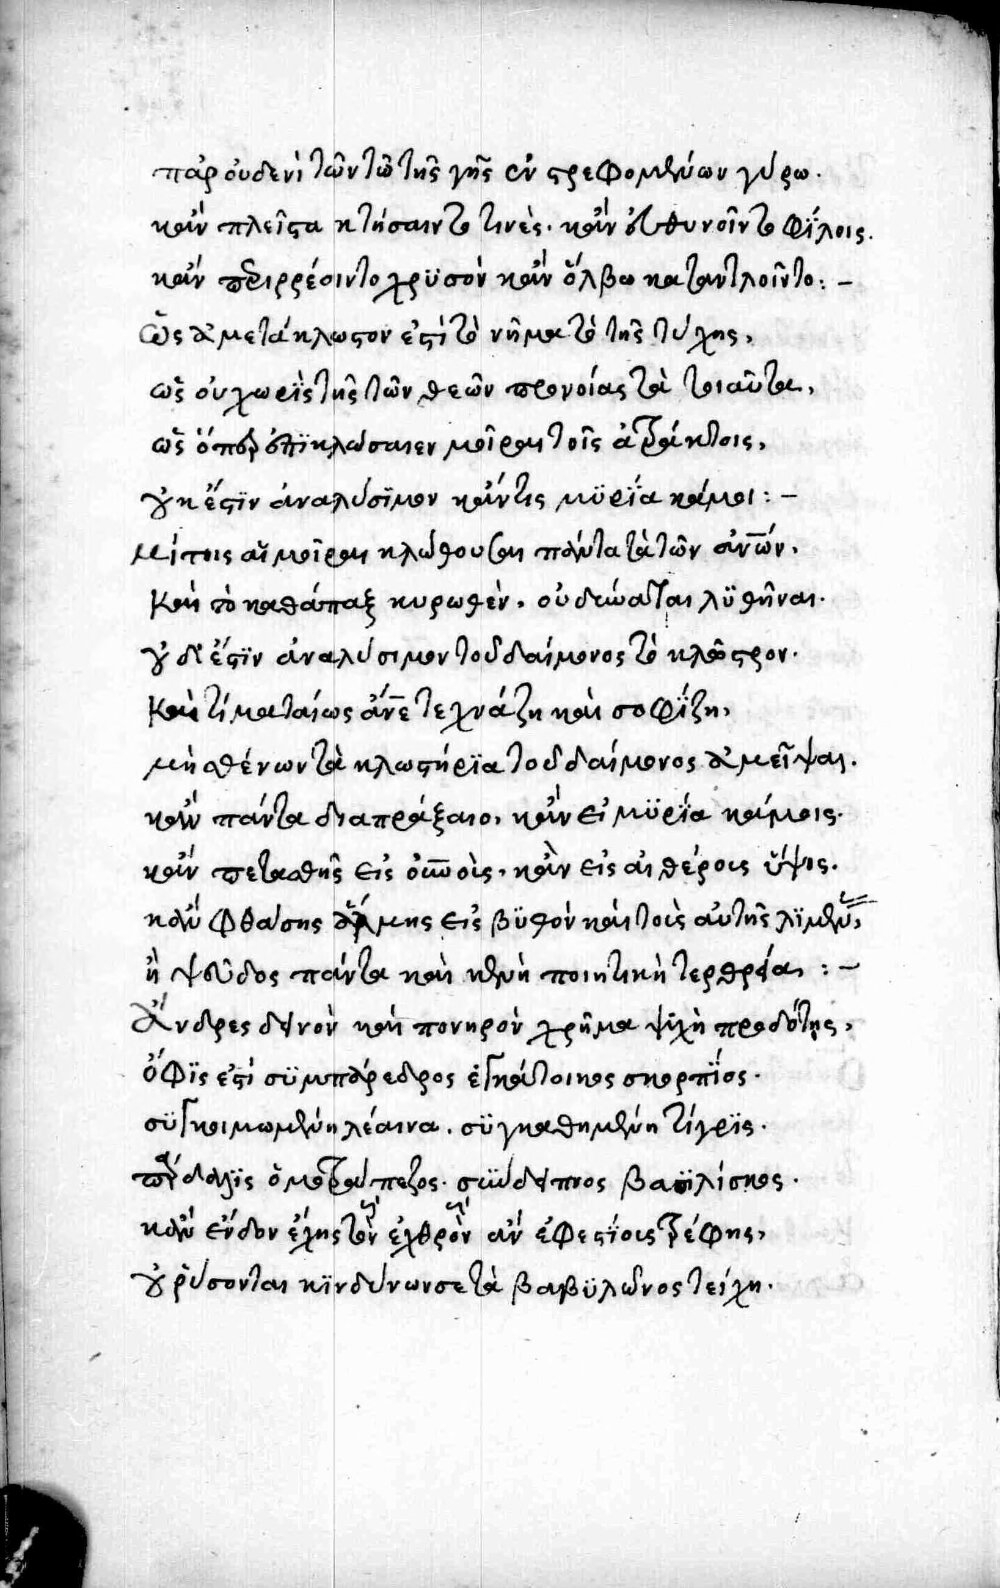 παρ' οὐδενὶ τῶν τῶ τῆς γῆς ἐνστρεφομένων γύρω.
κἂν πλεῖστα κτήσαιντο τινὲς. κἂν εὐθυνοῖντο φίλοις.
κἂν περιρρέοιντο χρϋσὸν κἂν ὄλβω καταντλοῖντο: –
Ὡς ἀμετάκλωστον ἐστὶ τὸ νῆμα τὸ τῆς τύχης,
ὡς οὐ χωρὶς τῆς τῶν θεῶν προνοίας τὰ τοιαῦτα,
ὡς ὅπερ ἐπϊκλώσαιεν μοῖραι τοῖς ἀτράκτοις,
οὐκ ἔστϊν ἀναλύσϊμον κἄντις μϋρΐα κάμοι: –
Μίτοις αἱ μοῖραι κλώθουσαι πάντα τὰ τῶν ἀνων,
Καὶ τὸ καθάπαξ κυρωθὲν, οὐ δύναται λϋθῆναι.
οὐδ' ἔστϊν ἀναλύσιμον τοῦ δαίμονος τὸ κλῶστρον.
Καὶ τί ματαίως ἄνε τεχνάζη καὶ σοφΐζη,
μὴ σθένων τὰ κλωστήρϊα τοῦ δαίμονος ἀμεῖψαι.
κἂν πάντα διαπράξαιο, κἂν εἰ μϋρΐα κάμοις.
κἂν πετασθῆς εἰς οὐνοὺς, κἂν εἰς αἰθέρος ὕψος.
κἂν φθάσης ἅλμης εἰς βϋθὸν καὶ τοὺς αὐτῆς λϊμένας,
ἢ ψεῦδος πάντα καὶ κενὴ ποιητικὴ τερθρεία: –
Ἄνδρες δεινὸν καὶ πονηρὸν χρῆμα ψϋχὴ προδότης,
ὄφϊς ἐστὶ σϋμπάρεδρος ἐγκάτοικος σκορπΐος.
σϋγκοιμωμένη λέαινα. σϋγκαθημένη τίγρϊς.
πάρδαλϊς ὁμοτράπεζος. σύνδειπνος βασϊλίσκος.
κἂν ἔνδον ἔχης τὸν ἐχθρὸν ἂν ἐφεστίοις τρέφης,
οὐ ῥύσονται κϊνδύνων σε τὰ βαβϋλῶνος τείχη.